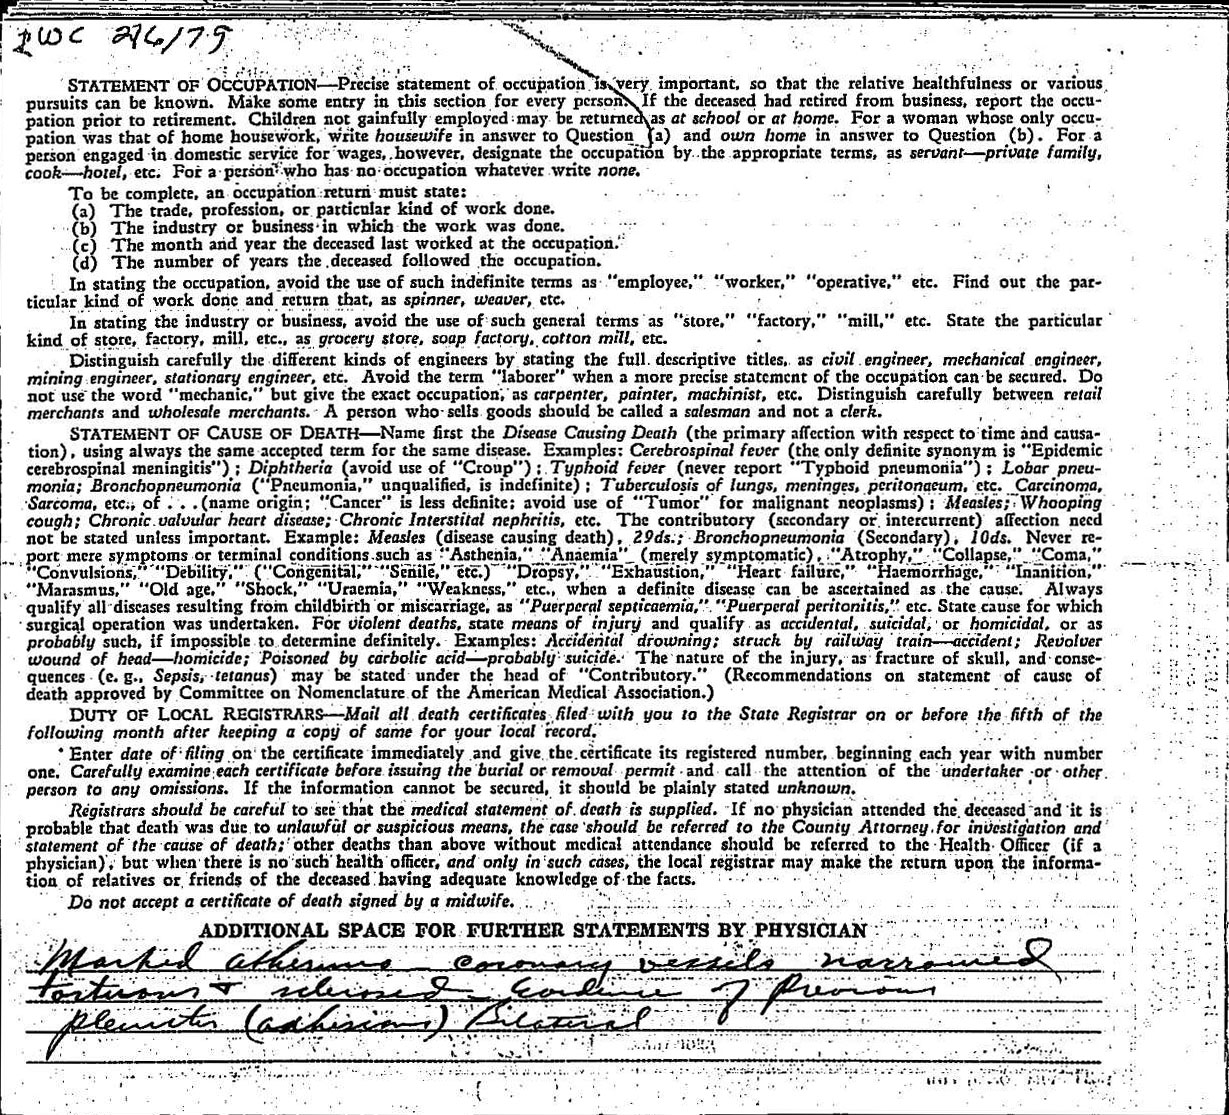 IWC 2/6/79
STATEMENT OF OCCUPATION—Precise statement of occupation is very important, so that the relative healthfulness or various
pursuits can be known. Make some entry in this section for every person. If the deceased had retired from business, report the occu-
pation prior to retirement. Children not gainfully employed may be returned as at school or at home. For a woman whose only occu-
pation was that of home housework, write housewife in answer to Question (a) and own home in answer to Question (b). For a
person engaged in domestic service for wages, however, designate the occupation by the appropriate terms, as servant—private family,
cook—hotel, etc. For a person who has no occupation whatever write none.
To be complete, an occupation return must state:
(a) The trade, profession, or particular kind of work done.
(b) The industry or business in which the work was done.
(c) The month and year the deceased last worked at the occupation.
(d) The number of years the deceased followed the occupation.
In stating the occupation, avoid the use of such indefinite terms as "employee," "worker," "operative," etc. Find out the par-
ticular kind of work done and return that, as spinner, weaver, etc.
In stating the industry or business, avoid the use of such general terms as "store," "factory," "mill," etc. State the particular
kind of store, factory, mill, etc., as grocery store, soap factory, cotton mill, etc.
Distinguish carefully the different kinds of engineers by stating the full descriptive titles, as civil engineer, mechanical engineer,
mining engineer, stationary engineer, etc. Avoid the term "laborer" when a more precise statement of the occupation can be secured. Do
not use the word "mechanic," but give the exact occupation, as carpenter, painter, machinist, etc. Distinguish carefully between retail
merchants and wholesale merchants. A person who sells goods should be called a salesman and not a clerk.
STATEMENT OF CAUSE OF DEATH—Name first the Disease Causing Death (the primary affection with respect to time and causa-
tion), using always the same accepted term for the same disease. Examples: Cerebrospinal fever (the only definite synonym is "Epidemic
cerebrospinal meningitis"); Diphtheria (avoid use of "Croup"); Typhoid fever (never report "Typhoid pneumonia"); Lobar pneu-
monia; Bronchopneumonia ("Pneumonia," unqualified, is indefinite); Tuberculosis of lungs, meninges, peritonaeum, etc. Carcinoma,
Sarcoma, etc., of . . . (name origin; "Cancer" is less definite; avoid use of "Tumor" for malignant neoplasms); Measles; Whooping
cough; Chronic valvular heart disease; Chronic Interstital nephritis, etc. The contributory (secondary or intercurrent) affection need
not be stated unless important. Example: Measles (disease causing death), 29ds.; Bronchopneumonia (Secondary), 10ds. Never re-
port mere symptoms or terminal conditions such as "Asthenia," "Anaemia" (merely symptomatic), "Atrophy," "Collapse," "Coma,"
"Convulsions," "Debility," ("Congenital," "Senile," etc.) "Dropsy," "Exhaustion," "Heart failure," "Haemorrhage," "Inanition,"
"Marasmus," "Old age," "Shock," "Uraemia," "Weakness," etc., when a definite disease can be ascertained as the cause. Always
qualify all diseases resulting from childbirth or miscarriage, as "Puerperal septicaemia," "Puerperal peritonitis," etc. State cause for which
surgical operation was undertaken. For violent deaths, state means of injury and qualify as accidental, suicidal, or homicidal, or as
probably such, if impossible to determine definitely. Examples: Accidental drowning; struck by railway train—accident; Revolver
wound of head—homicide; Poisoned by carbolic acid—probably suicide. The nature of the injury, as fracture of skull, and conse-
quences (e. g., Sepsis, tetanus) may be stated under the head of "Contributory." (Recommendations on statement of cause of
death approved by Committee on Nomenclature of the American Medical Association.)
DUTY OF LOCAL REGISTRARS—Mail all death certificates filed with you to the State Registrar on or before the fifth of the
following month after keeping a copy of same for your local record.
Enter date of filing on the certificate immediately and give the certificate its registered number, beginning each year with number
one. Carefully examine each certificate before issuing the burial or removal permit and call the attention of the undertaker or other
person to any omissions. If the information cannot be secured, it should be plainly stated unknown.
Registrars should be careful to see that the medical statement of death is supplied. If no physician attended the deceased and it is
probable that death was due to unlawful or suspicious means, the case should be referred to the County Attorney for investigation and
statement of the cause of death; other deaths than above without medical attendance should be referred to the Health Officer (if a
physician), but when there is no such health officer, and only in such cases, the local registrar may make the return upon the informa-
tion of relatives or friends of the deceased having adequate knowledge of the facts.
Do not accept a certificate of death signed by a midwife.
ADDITIONAL SPACE FOR FURTHER STATEMENTS BY PHYSICIAN
Marked atheroma coronary vessels narrowed
tortuous & sclerosed - Evidence of Previous
pleurites (adhesions) Bilateral